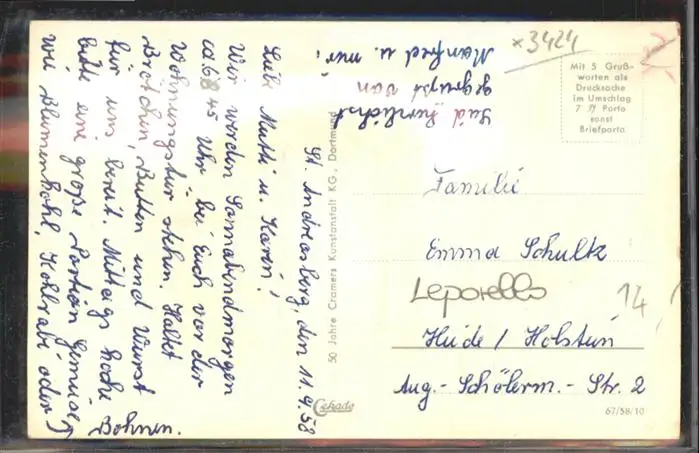 St. Andreasberg, den 11.9.58
Liebe Mutti u. Karin!
Wir werden Sonnabendmorgen
ca 6 45 Uhr bei Euch vor der
Wohnungstür stehen. Haltet
Brötchen, Butter und Wurst
für uns bereit. Mittags koche
bitte eine große Portion Gemüse,
wie Blumenkohl, Kohlrabi oder
Bohnen.
Seid herzlichst
gegrüßt von
Manfred u. mir!
x3424
Mit 5 Gruß-
worten als
Drucksache
im Umschlag
7 Pf Porto
sonst
Briefporto
Familie
Emma Schultz
Leporello
14
Heide / Holstein
Aug.-Schölerm.-Str. 2
50 Jahre Cramers Kunstanstalt KG., Dortmund
Cekade
67/58/10